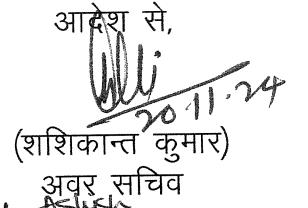 आदेश से,
20.11.24
(शशिकान्त कुमार)
अवर सचिव